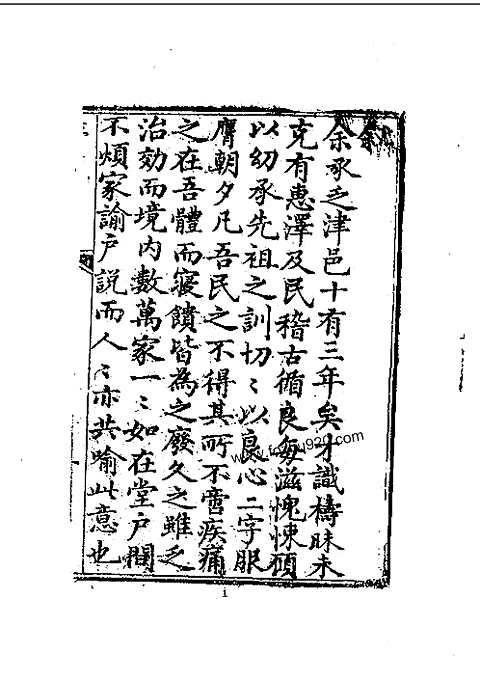 余承乏津邑十有三年矣才識檮昧未
克有惠澤及民稽古循良每滋愧悚顧
以幼承先祖之訓切〻以良心二字服
膺朝夕凡吾民之不得其所不啻疾痛
之在吾體而寢饋皆為之廢久之雖乏
治効而境內數萬家一〻如在堂戶閒
不煩家諭戶說而人〻亦共喻此意也
1